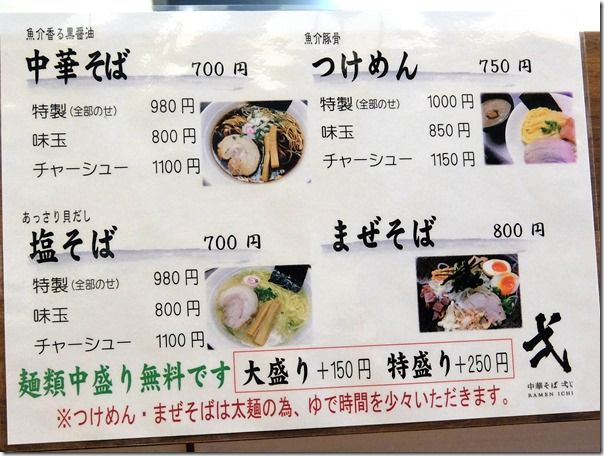 魚介香る黒醤油
中華そば 700円
特製(全部のせ) 980円
味玉 800円
チャーシュー 1100円
魚介豚骨
つけめん 750円
特製(全部のせ) 1000円
味玉 850円
チャーシュー 1150円
あっさり貝だし
塩そば 700円
特製(全部のせ) 980円
味玉 800円
チャーシュー 1100円
まぜそば 800円
麺類中盛り無料です
大盛り+150円 特盛り+250円
※つけめん・まぜそばは太麺の為、ゆで時間を少々いただきます。
弐
中華そば
RAMEN ICHI